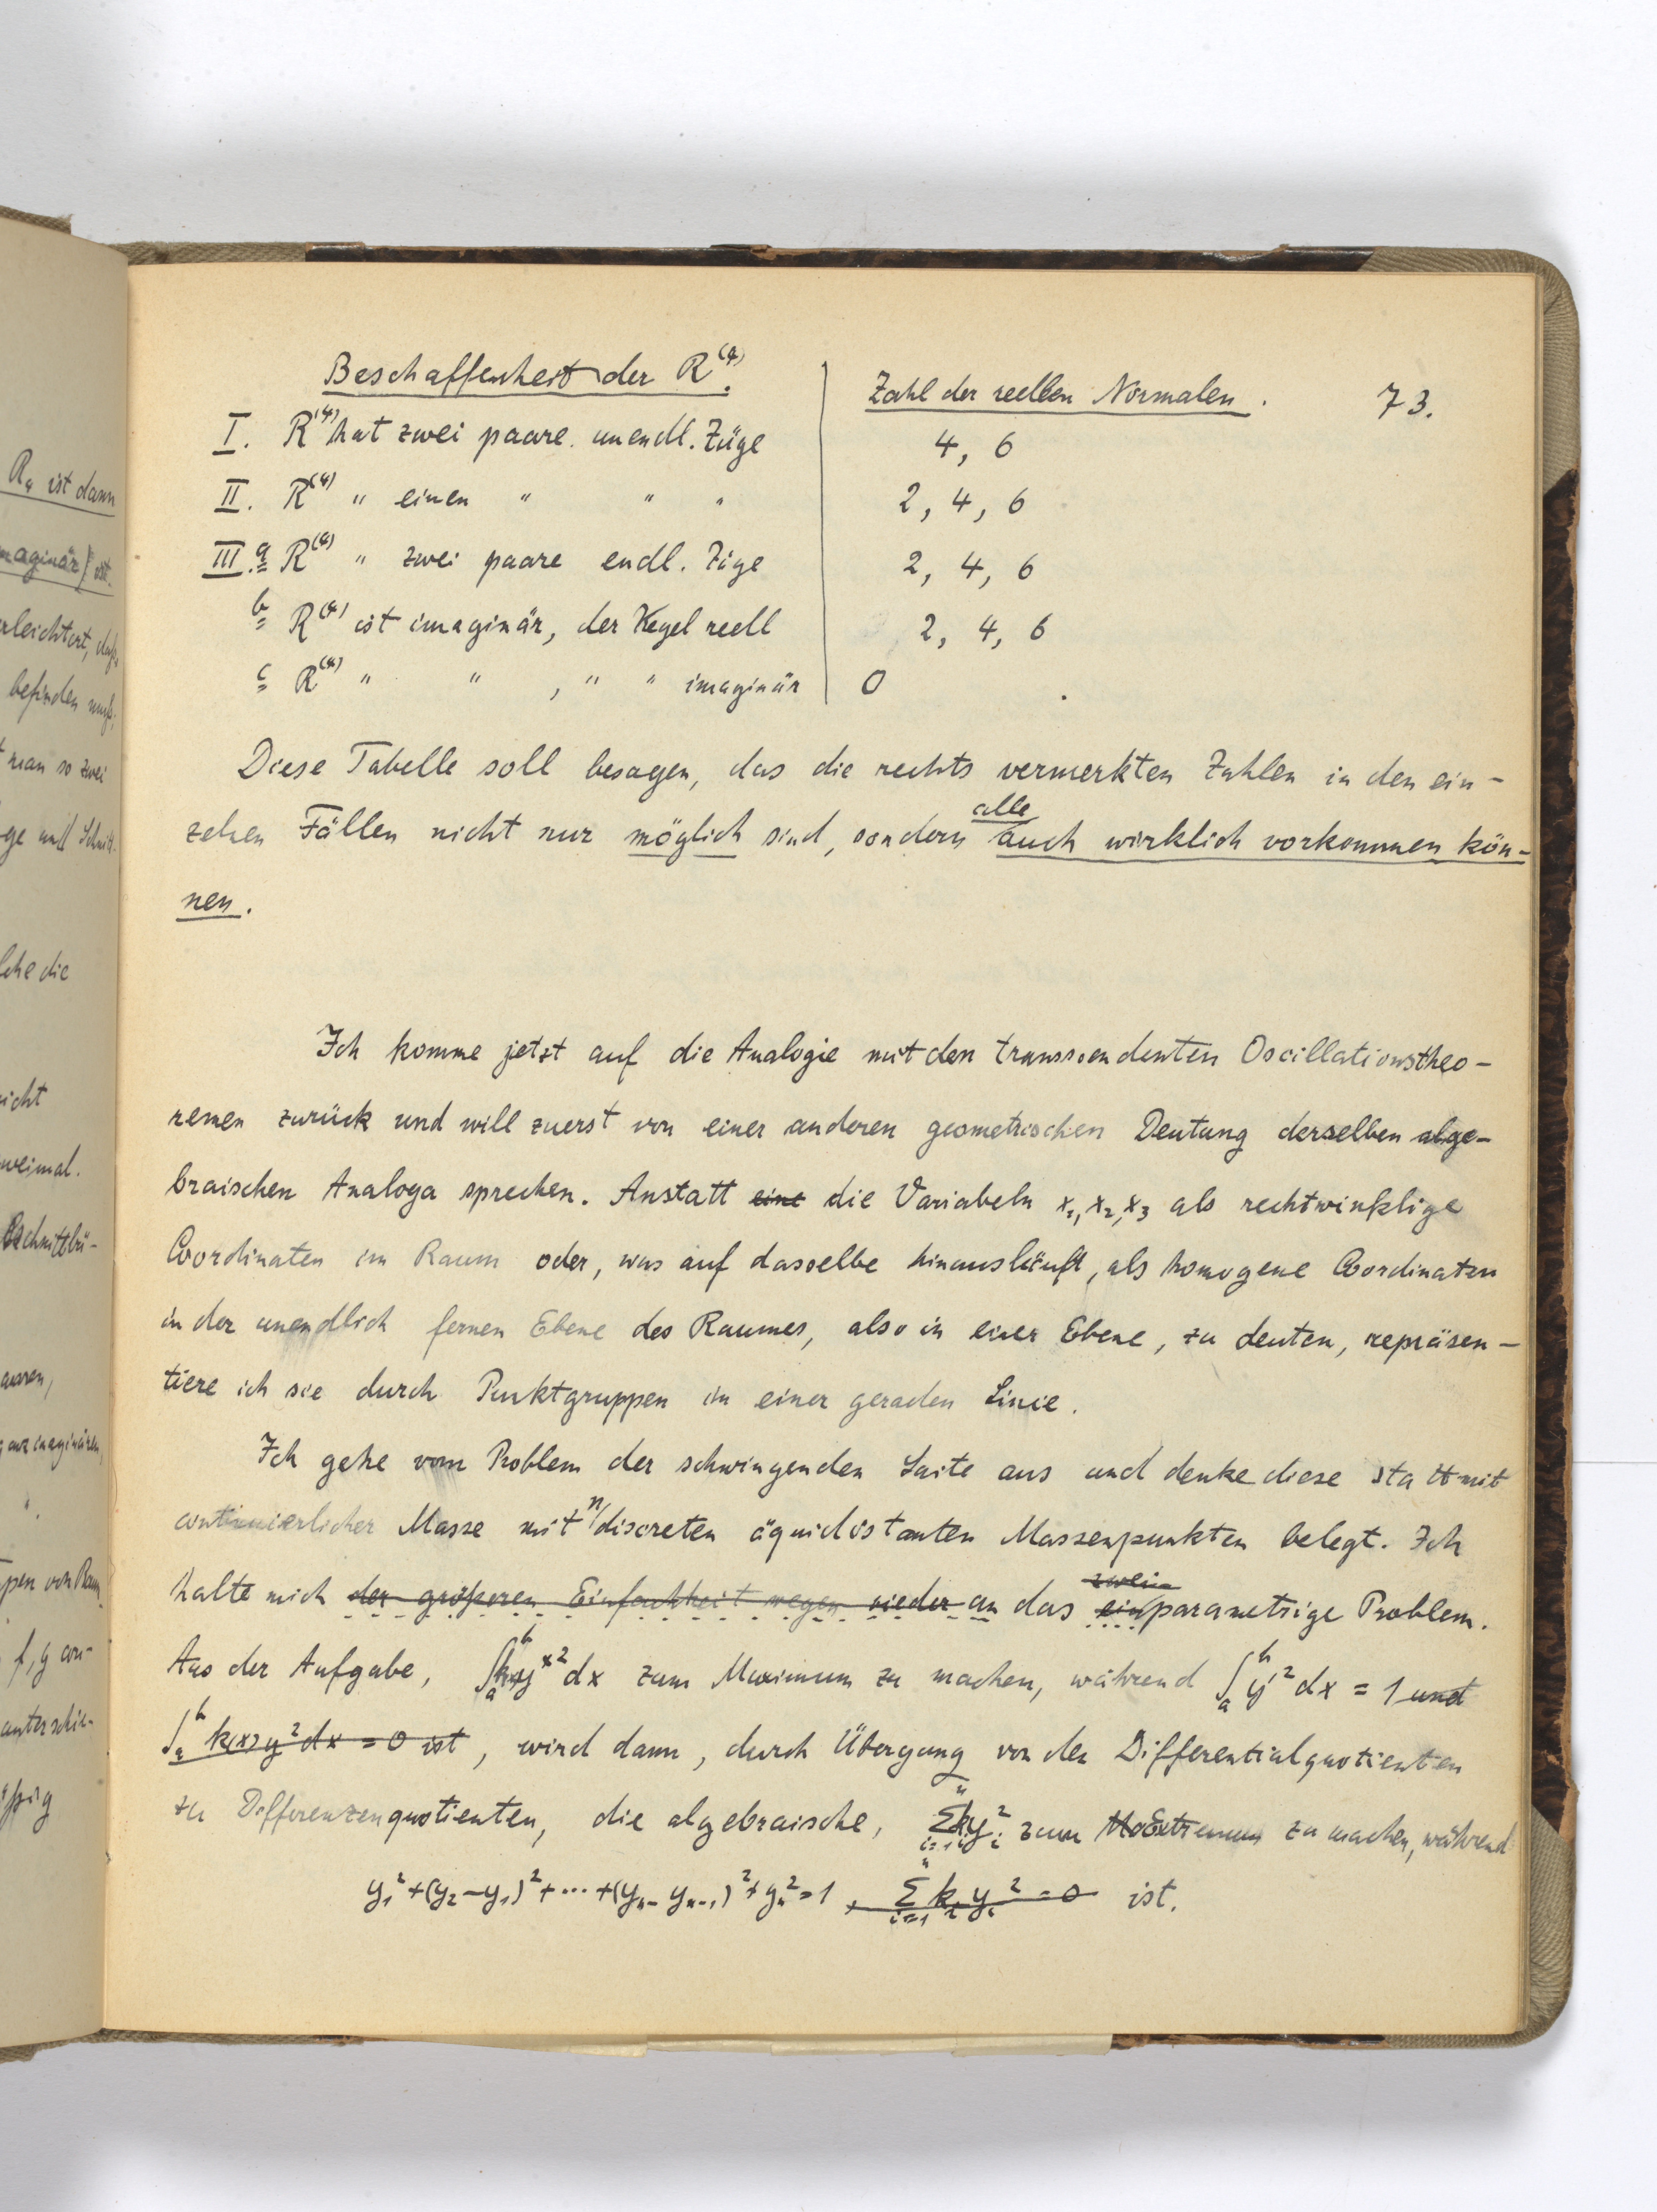 73.
Beschaffenheit der R⁽⁴⁾. Zahl der reellen Normalen.
I. R⁽⁴⁾ hat zwei paare unendl. Züge 4, 6
II. R⁽⁴⁾ " einen " " " 2, 4, 6
III. a R⁽⁴⁾ " zwei paare endl. Züge 2, 4, 6
b R⁽⁴⁾ ist imaginär, der Kegel reell 2, 4, 6
c R⁽⁴⁾ " " , " " imaginär 0
Diese Tabelle soll besagen, das die rechts vermerkten Zahlen in den ein-
zelnen Fällen nicht nur möglich sind, sondern alle auch wirklich vorkommen kön-
nen.
Ich komme jetzt auf die Analogie mit den transscendenten Oscillationstheo-
remen zurück und will zuerst von einer anderen geometrischen Deutung derselben alge-
braischen Analoga sprechen. Anstatt eine die Variabeln x₁, x₂, x₃ als rechtwinklige
Coordinaten im Raum oder, was auf dasselbe hinausläuft, als homogene Coordinaten
in der unendlich fernen Ebene des Raumes, also in einer Ebene, zu deuten, repräsen-
tiere ich sie durch Punktgruppen in einer geraden Linie.
Ich gehe vom Problem der schwingenden Saite aus und denke diese statt mit
continuierlicher Masse mit n discreten äquidistanten Massenpunkten belegt. Ich
halte mich der größeren Einfachheit wegen wieder an das zwei ein parametrige Problem.
Aus der Aufgabe, ∫ₐᵇ y² dx zum Maximum zu machen, während ∫ₐᵇ y'² dx = 1 und
∫ₐᵇ k(x) y² dx = 0 ist, wird dann, durch Übergang von den Differentialquotienten
zu Differenzenquotienten, die algebraische, Σᵢ₌₁ⁿ kᵢyᵢ² zum Extremum zu machen, während
y₁² + (y₂ − y₁)² + ··· + (yₙ − yₙ₋₁)² + yₙ² = 1, Σᵢ₌₁ⁿ kᵢ yᵢ² = 0 ist.
R₄ ist dann
maginär) ist.
rleichtert, daß
befinden muß,
man so zwei
icht
weimal.
f, g